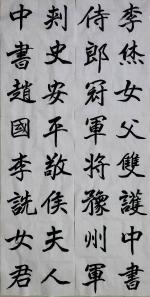 李烋女父雙護中書
侍郎冠軍將豫州軍
刺史安平敬侯夫人
中書趙國李詵女君